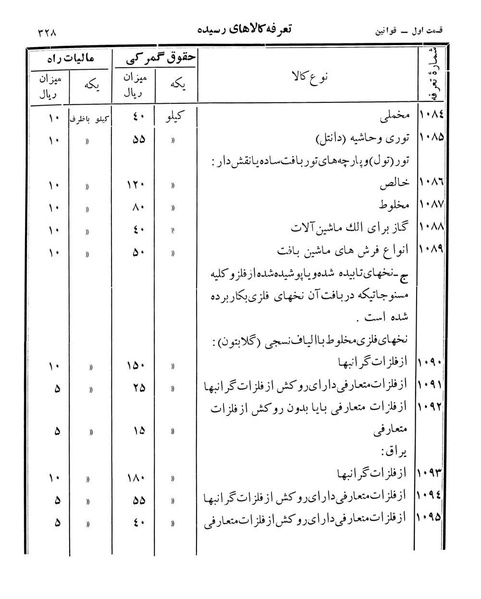 قسمت اول – قوانین تعرفه کالاهای رسیده ۳۲۸
شمارهٔ تعرفه نوع کالا حقوق گمرکی مالیات راه
یکه میزان ریال یکه میزان ریال
۱۰۸٤ مخملی کیلو ٤۰ کیلو باظرف ۱۰
۱۰۸۵ توری وحاشیه (دانتل) » ۵۵ » ۱۰
تور(تول)وپارچه‌های‌توربافت‌ساده‌یانقش‌دار:
۱۰۸۶ خالص » ۱۲۰ » ۱۰
۱۰۸۷ مخلوط » ۸۰ » ۱۰
۱۰۸۸ گاز برای الك ماشین آلات » ٤۰ » ۱۰
۱۰۸۹ انواع فرش های ماشین بافت » ۵۰ » ۱۰
ج-نخهای‌تابیده شده‌ویاپوشیده‌شده‌ازفلزوکلیه
مسنوجاتیکه دربافت‌آن نخهای فلزی‌بکاربرده
شده است .
نخهای‌فلزی‌مخلوط‌باالیاف‌نسجی(گلابتون):
۱۰۹۰ ازفلزات‌گرانبها » ۱۵۰ » ۱۰
۱۰۹۱ ازفلزات‌متعارفی‌دارای‌روکش‌ازفلزات‌گرانبها » ۲۵ » ۵
۱۰۹۲ ازفلزات متعارفی بایا بدون روکش ازفلزات
متعارفی » ۱۵ » ۵
یراق:
۱۰۹۳ ازفلزات‌گرانبها » ۱۸۰ » ۱۰
۱۰۹٤ ازفلزات‌متعارفی‌دارای‌روکش‌ازفلزات‌گرانبها » ۵۵ » ۵
۱۰۹۵ ازفلزات‌متعارفی‌دارای‌روکش‌ازفلزات‌متعارفی » ٤۰ » ۵